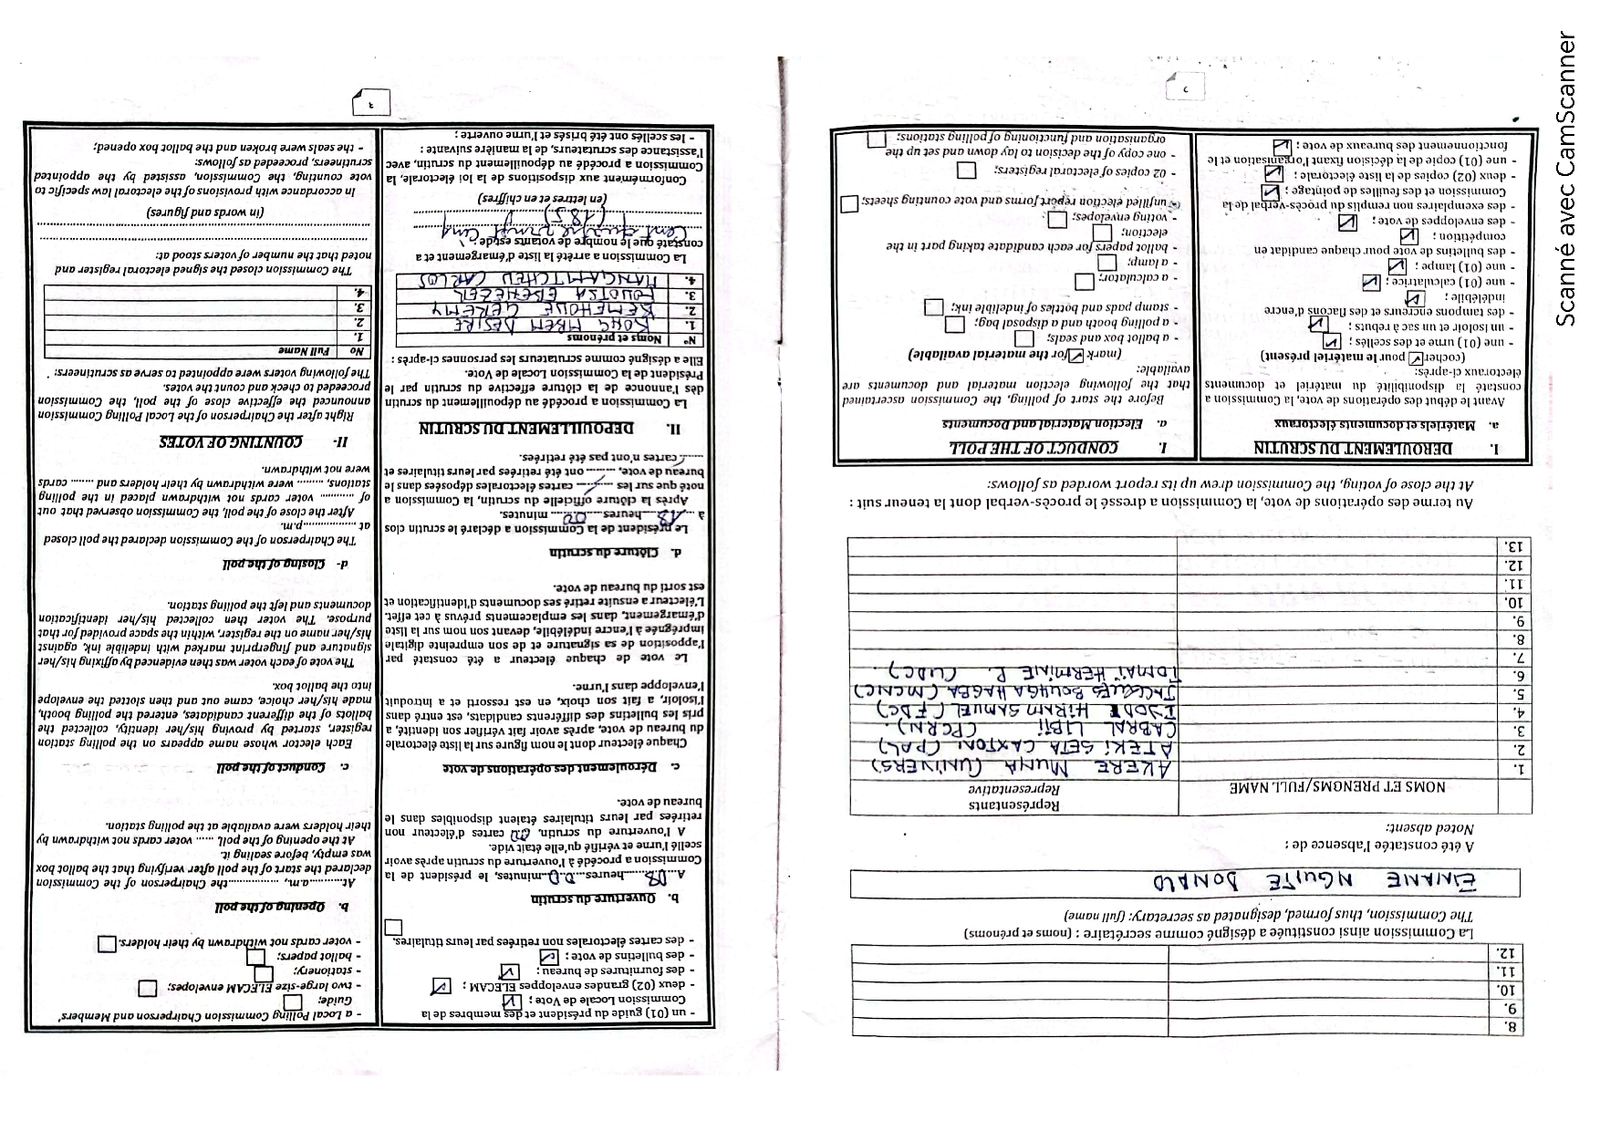 8.
9.
10.
11.
12.
La Commission ainsi constituée a désigné comme secrétaire : (noms et prénoms)
The Commission, thus formed, designated as secretary: (full name)
ENANE NGUITE DONALD
A été constatée l'absence de :
Noted absent:
NOMS ET PRENOMS/FULL NAME
Représentants
Representative
1. AKERE MUNA (UNIVERS)
2. ATEKI SETA CAXTON (PAL)
3. CABRAL LIBII (PCRN)
4. HIRAM SAMUEL (FDC)
5. JACQUES BOUHGA HAGBA (MCNC)
6. TOMAÏ HERMINE P. (UDC).
7.
8.
9.
10.
11.
12.
13.
Au terme des opérations de vote, la Commission a dressé le procès-verbal dont la teneur suit :
At the close of voting, the Commission drew up its report worked as follows:
I. DEROULEMENT DU SCRUTIN
a. Matériels et documents électoraux
Avant le début des opérations de vote, la Commission a
constaté la disponibilité du matériel et documents
électoraux ci-après:
(cochet ☑ pour le matériel présent)
- une (01) urne et des scellés ; ☑
- un isoloir et un sac à rebuts ; ☑
- des tampons encreurs et des flacons d'encre
indélébile ; ☑
- une (01) calculatrice ; ☑
- une (01) lampe ; ☑
- des bulletins de vote pour chaque candidat en
compétition ; ☑
- des enveloppes de vote ; ☑
- des exemplaires non remplis du procès-verbal de la
Commission et des feuilles de pointage ; ☑
- deux (02) copies de la liste électorale ; ☑
- une (01) copie de la décision fixant l'organisation et le
fonctionnement des bureaux de vote ; ☑
I. CONDUCT OF THE POLL
a. Election Material and Documents
Before the start of polling, the Commission ascertained
that the following election material and documents are
available:
(mark ☑ for the material available)
- a ballot box and seals; ☐
- a polling booth and a disposal bag; ☐
- stamp pads and bottles of indelible ink; ☐
- a calculator; ☐
- a lamp; ☐
- ballot papers for each candidate taking part in the
election; ☐
- voting envelopes; ☐
- unfilled election report forms and vote counting sheets; ☐
- 02 copies of electoral registers; ☐
- one copy of the decision to lay down and set up the
organisation and functioning of polling stations; ☐
2
- un (01) guide du président et des membres de la
Commission Locale de Vote ; ☑
- deux (02) grandes enveloppes ELECAM ; ☑
- des fournitures de bureau ; ☑
- des bulletins de vote ; ☑
- des cartes électorales non retirées par leurs titulaires. ☐
b. Ouverture du scrutin
A 08 heures 00 minutes, le président de la
Commission a procédé à l'ouverture du scrutin après avoir
scellé l'urne et vérifié qu'elle était vide.
A l'ouverture du scrutin, 00 cartes d'électeur non
retirées par leurs titulaires étaient disponibles dans le
bureau de vote.
c. Déroulement des opérations de vote
Chaque électeur dont le nom figure sur la liste électorale
du bureau de vote, après avoir fait vérifier son identité, a
pris les bulletins des différents candidats, est entré dans
l'isoloir, a fait son choix, en est ressorti et a introduit
l'enveloppe dans l'urne.
Le vote de chaque électeur a été constaté par
l'apposition de sa signature et de son empreinte digitale
imprégnée à l'encre indélébile, devant son nom sur la liste
d'émargement, dans les emplacements prévus à cet effet.
L'électeur a ensuite retiré ses documents d'identification et
est sorti du bureau de vote.
d. Clôture du scrutin
Le président de la Commission a déclaré le scrutin clos
à 18 heures 00 minutes.
Après la clôture officielle du scrutin, la Commission a
noté que sur les / cartes électorales déposées dans le
bureau de vote, ...... ont été retirées par leurs titulaires et
...... cartes n'ont pas été retirées.
II. DEPOUILLEMENT DU SCRUTIN
La Commission a procédé au dépouillement du scrutin
dès l'annonce de la clôture effective du scrutin par le
Président de la Commission Locale de Vote.
Elle a désigné comme scrutateurs les personnes ci-après :
N° Noms et prénoms
1. KONG MBEM DESIRE
2. KEMEHOUE GEREMY
3. FOUOTSA EBENEZER
4. MANGAMTCHEU CARLOS
La Commission a arrêté la liste d'émargement et a
constaté que le nombre de votants est de :
Cent quatre vingt cinq
(185)
(en lettres et en chiffres)
Conformément aux dispositions de la loi électorale, la
Commission a procédé au dépouillement du scrutin, avec
l'assistance des scrutateurs, de la manière suivante :
- les scellés ont été brisés et l'urne ouverte ;
- a Local Polling Commission Chairperson and Members'
Guide; ☐
- two large-size ELECAM envelopes; ☐
- stationery; ☐
- ballot papers; ☐
- voter cards not withdrawn by their holders. ☐
b. Opening of the poll
At..........a.m, ..............the Chairperson of the Commission
declared the start of the poll after verifying that the ballot box
was empty, before sealing it.
At the opening of the poll, ...... voter cards not withdrawn by
their holders were available at the polling station.
c. Conduct of the poll
Each elector whose name appears on the polling station
register, started by proving his/her identity, collected the
ballots of the different candidates, entered the polling booth,
made his/her choice, came out and then slotted the envelope
into the ballot box.
The vote of each voter was then evidenced by affixing his/her
signature and fingerprint marked with indelible ink, against
his/her name on the register, within the space provided for that
purpose. The voter then collected his/her identification
documents and left the polling station.
d- Closing of the poll
The Chairperson of the Commission declared the poll closed
at ..................p.m.
After the close of the poll, the Commission observed that out
of ............ voter cards not withdrawn placed in the polling
stations, ......... were withdrawn by their holders and ........ cards
were not withdrawn.
II- COUNTING OF VOTES
Right after the Chairperson of the Local Polling Commission
announced the effective close of the poll, the Commission
proceeded to check and count the votes.
The following voters were appointed to serve as scrutineers:
No Full Name
1.
2.
3.
4.
The Commission closed the signed electoral register and
noted that the number of voters stood at:
(in words and figures)
In accordance with provisions of the electoral law specific to
vote counting, the Commission, assisted by the appointed
scrutineers, proceeded as follows:
- the seals were broken and the ballot box opened;
3
Scanné avec CamScanner